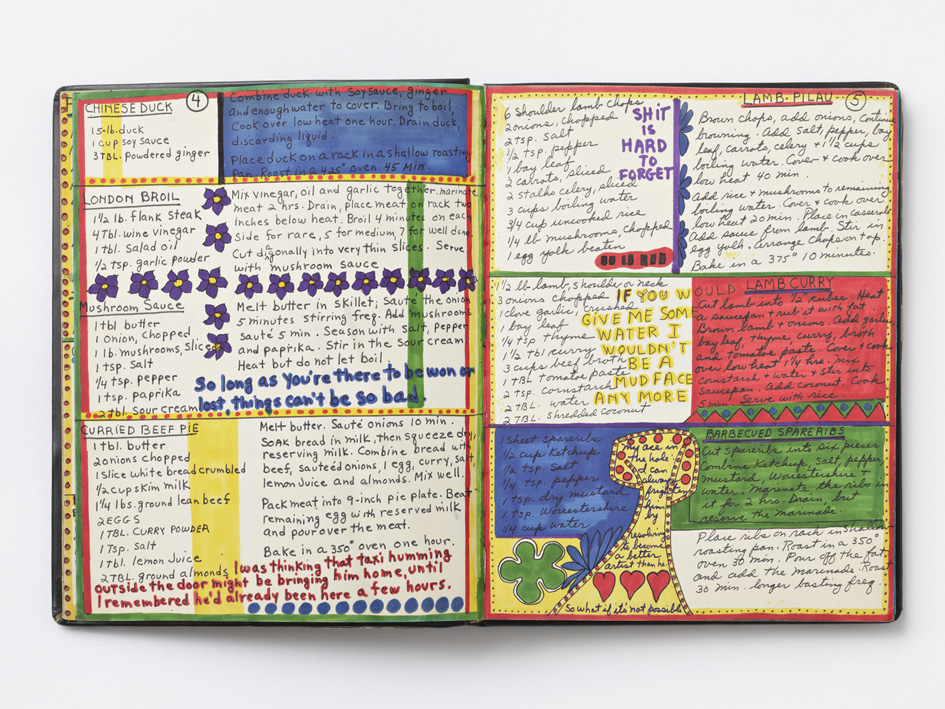 CHINESE DUCK
4
1 5-lb. duck
1 cup soy sauce
3 TBL. powdered ginger
Combine duck with soy sauce, ginger
and enough water to cover. Bring to boil,
Cook over low heat one hour. Drain duck,
discarding liquid.
Place duck on a rack in a shallow roasting
pan. Roast in a 425° oven 45 Min.
LONDON BROIL
1 1/2 lb. flank steak
4 Tbl. wine vinegar
1 tbl. Salad oil
1/2 tsp. garlic powder
Mix vinegar, oil and garlic together. marinate
meat 2 hrs. Drain, place meat on rack two
Inches below heat. Broil 4 minutes on each
Side for rare, 5 for medium, 7 for well done.
Cut diagonally into very thin slices. Serve
with mushroom sauce
Mushroom Sauce
1 tbl butter
1 Onion, Chopped
1 lb. mushrooms, sliced
1 tsp. Salt
1/4 tsp. pepper
1 tsp. paprika
2 tbl. Sour cream
Melt butter in skillet; Sauté the onion
5 minutes stirring freq. Add mushrooms
sauté 5 min. Season with salt, pepper
and paprika. Stir in the sour cream
Heat but do not let boil
So long as you're there to be won or
lost, things can't be so bad.
CURRIED BEEF PIE
1 tbl. butter
2 onions chopped
1 Slice white bread crumbled
1/2 cup skim milk
1 1/4 lbs. ground lean beef
2 EGGS
1 TBL. CURRY POWDER
1 Tsp. Salt
1 Tbl. lemon Juice
2 TBL. ground almonds
Melt butter. Sauté onions 10 min.
SOAK bread in milk, then squeeze dry,
reserving milk. Combine bread with
beef, sauteéd onions, 1 egg, curry, salt
lemon Juice and almonds. Mix well.
Pack meat into 9-inch pie plate. Beat
remaining egg with reserved milk
and pour over the meat.
Bake in a 350° oven one hour.
I was thinking that taxi humming
outside the door might be bringing him home, until
I remembered he'd already been here a few hours.
LAMB PILAU
5
6 Shoulder lamb chops
2 onions, chopped
2 tsp. Salt
1/2 tsp. pepper
1 bay leaf
2 carrots, sliced
2 stalks celery, sliced
3 cups boiling water
3/4 cup uncooked rice
1/4 lb mushrooms, chopped
1 egg yolk beaten
SHIT
IS
HARD
TO
FORGET
Brown chops, add onions, continue
browning. Add salt, pepper, bay
leaf, carrots, celery + 1 1/2 cups
boiling water. Cover + cook over
low heat 40 min.
Add rice + mushrooms to remaining
boiling water. Cover + cook over
low heat 20 min. Place in casserole
Add sauce from lamb. Stir in
egg yolk. Arrange chops on top.
Bake in a 375° 10 minutes.
LAMB CURRY
1 1/2 lb lamb, shoulder or neck
3 onions chopped
1 clove garlic, crushed
1 bay leaf
1/4 tsp thyme
1 1/2 tbl curry
3 cups beef broth
1 TBL tomato paste
2 tsp. cornstarch
2 TBL. water
2 TBL. shredded coconut
IF YOU WOULD
GIVE ME SOME
WATER I
WOULDN'T
BE A
MUD FACE
ANY MORE
Cut lamb into 1/2" cubes. Heat
a saucepan + rub it with fat
Brown lamb + onions. Add garlic,
bay leaf, thyme, curry, broth
and tomato paste. Cover + cook
over low heat 1 1/2 hrs. Mix
cornstarch + water + stir into
saucepan. Add coconut. Cook
5 min. Serve with rice
BARBECUED SPARERIBS
1 sheet spareribs
1/2 cup Ketchup
1/2 tsp. Salt
1/4 tsp. pepper
1 tsp. dry mustard
1 tsp. Worcestershire
1/4 cup water
My ace in
the hole
I can
always
frighten
him
by
resolving
to become
a better
artist than he
So what if it's not possible
Cut spareribs into six pieces
Combine Ketchup, Salt pepper
mustard, Worcestershire +
water. Marinate the ribs in
it for 2 hrs. Drain, but
reserve the marinade.
Place ribs on rack in shallow
roasting pan. Roast in a 350°
oven 30 min. Pour off the fat
and add the marinade. Roast
30 min. longer basting freq.